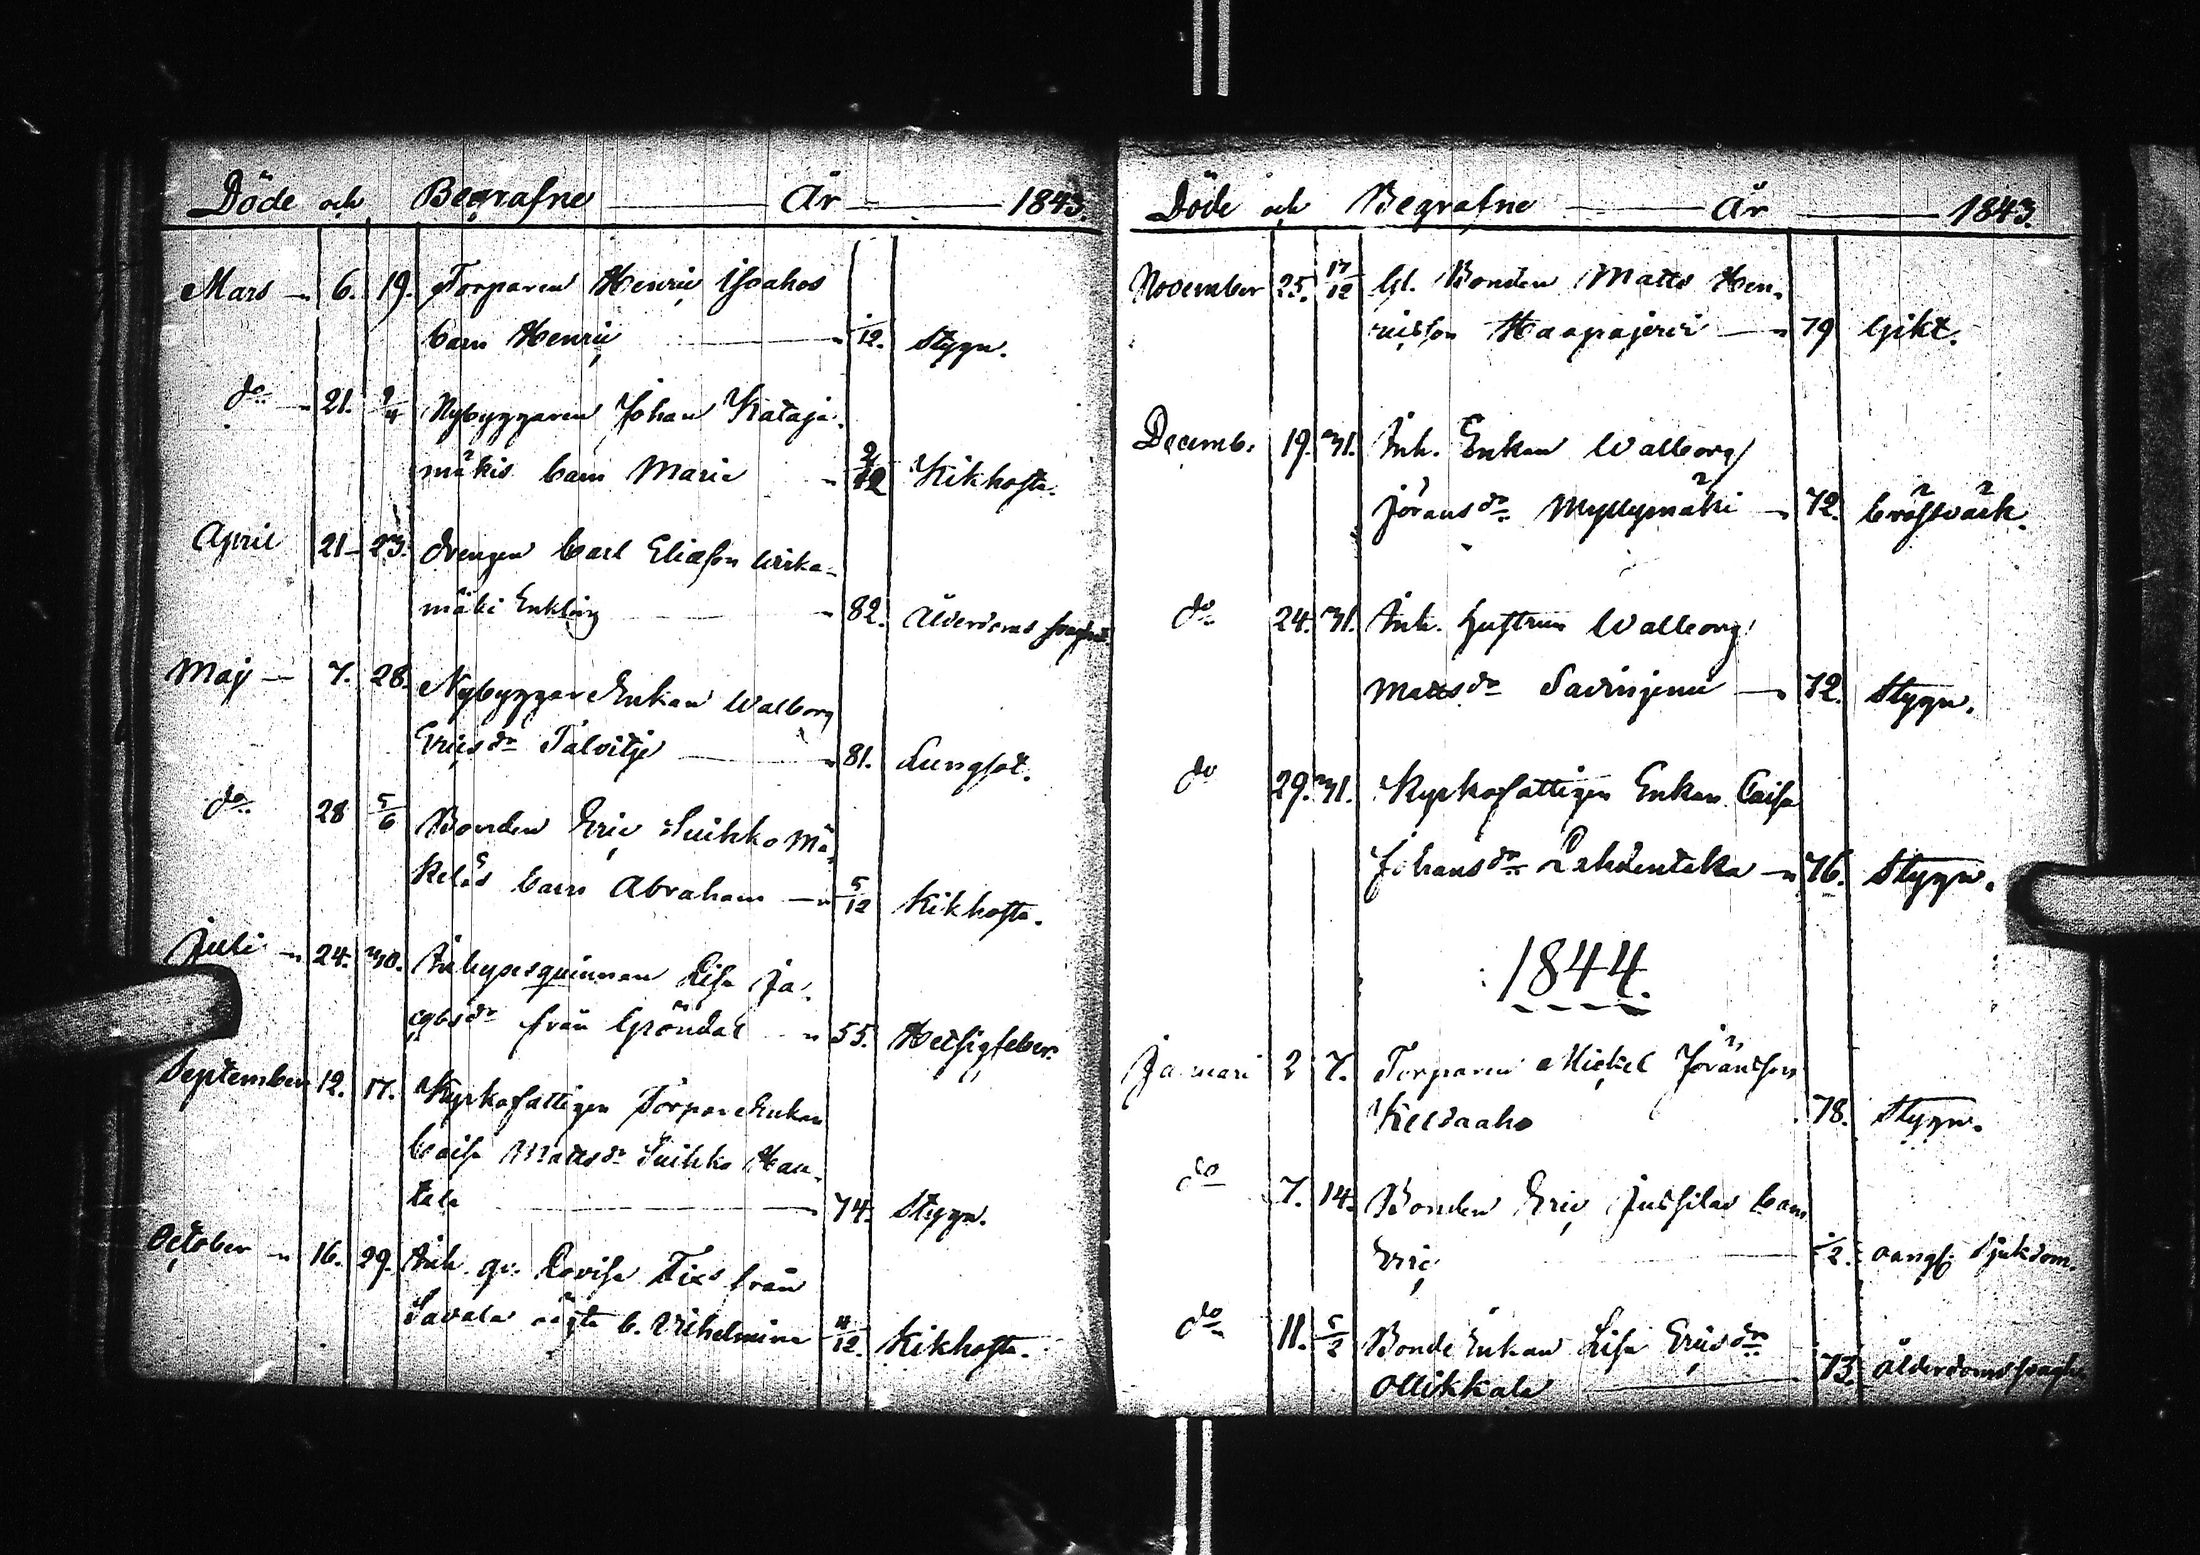 Döde och Begrafne År 1843.
Mars 6. 19. Torparen Henric Isoahos
barn Henric 1/12. Stygn.
do 21. 2/4 Nybyggaren Johan Kataja-
mäkis barn Maria 2/12 Kikhosta.
April 21 23. drengen Carl Eliasson
mäki Enkling 82. Ålderdoms
Maji 7. 28. Nybyggare Enkan Walborg
Ericsdr Talvitje 81. Lungsot.
do 28 5/6 Bonden Eric Suihko Mä-
keläs barn Abraham 5/12 Kikhosta.
Juli 24. 30. Inhysesquinnan Lisa Ja-
cobsdr från Gröndal 55. Hetsigfeber.
September 12. 17. Kyrkofattigen Torpare Enkan
Caisa Mattsdr Suihko Hau-
tala 74. Stygn.
October 16. 29. Inh. qv. Lovisa Fix från
Savala oägta b. Vilhelmina 4/12. Kikhosta.
Döde och Begrafne År 1843.
November 25. 17/12 Gl. Bonden Matts Hen-
ricsson Haapajervi 79 Gikt.
Decemb. 19. 31. Inh. Enkan Walborg
Jöransdr Myllymäki 72. Bröstvärk.
do 24. 31. Inh. hustrun Walborg
Mattsdr Savinjemi 72. Stygn.
do 29. 31. Kyrkofattigen Enkan Caisa
Johansdr 76. Stygn.
1844.
Januari 2 7. Torparen Mickel Jöransson
Keldaaho 78. Stygn.
do 7. 14. Bonden Eric Jussilas barn
Eric 1/2. oangif. Sjukdom.
do 11. 5/2 Bonde Enkan Lisa Ericsdr
Ollikkala 73. Ålderdoms